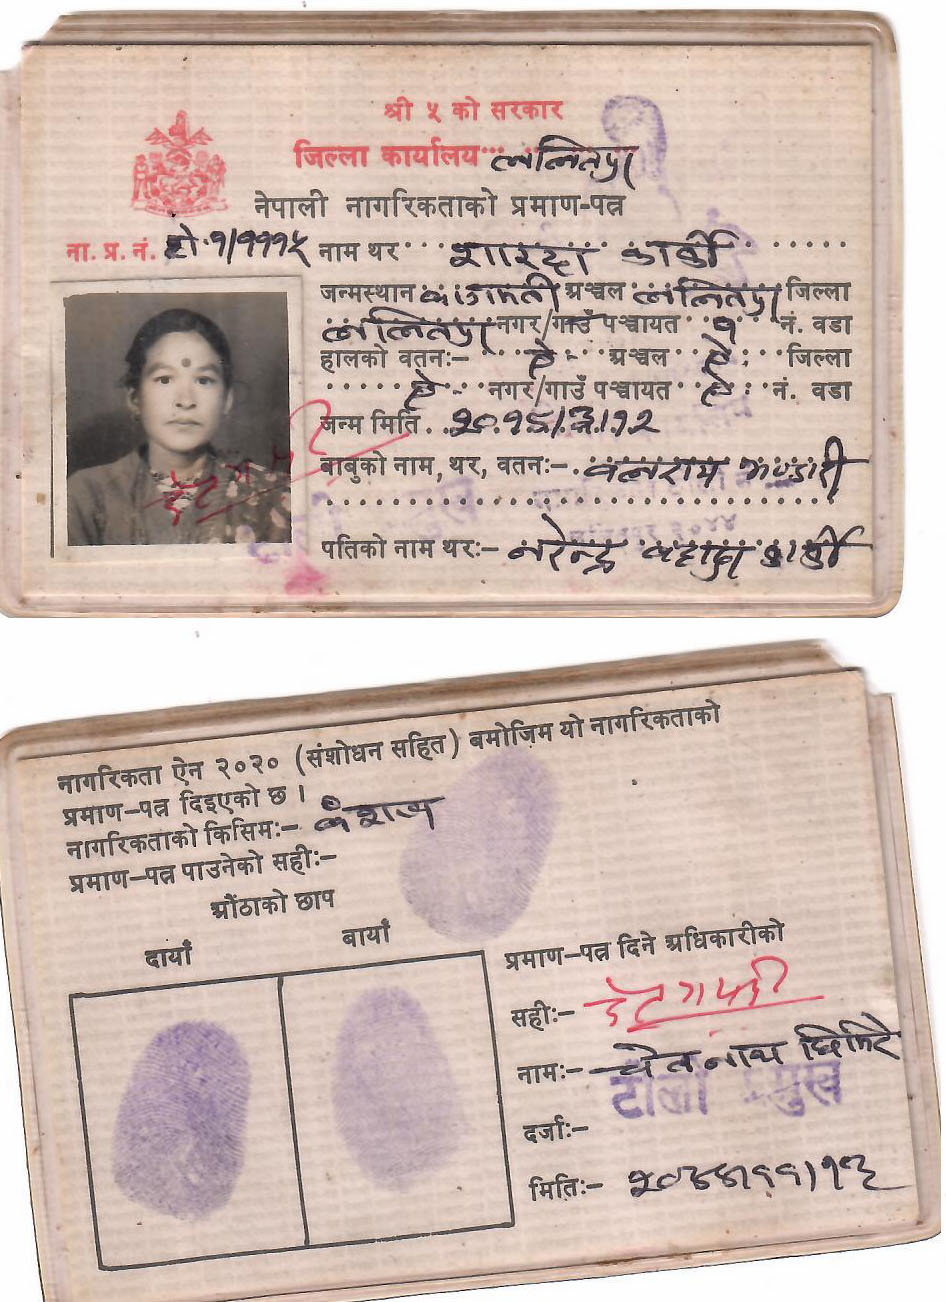 श्री ५ को सरकार
जिल्ला कार्यालय ललितपुर
नेपाली नागरिकताको प्रमाण-पत्र
ना. प्र. नं. नाम थर शारदा कार्की
जन्मस्थान बागमती अञ्चल ललितपुर जिल्ला
ललितपुर नगर/गाउँ पञ्चायत १ नं. वडा
हालको वतन:- ऐ. अञ्चल ऐ. जिल्ला
ऐ. नगर/गाउँ पञ्चायत ऐ. नं. वडा
जन्म मिति
बाबुको नाम, थर, वतन:- बलराम भण्डारी
पतिको नाम थर:- नरेन्द्र बहादुर कार्की
नागरिकता ऐन २०२० (संशोधन सहित) बमोजिम यो नागरिकताको
प्रमाण-पत्र दिइएको छ ।
नागरिकताको किसिम:- वंशज
प्रमाण-पत्र पाउनेको सही:-
औंठाको छाप
दायाँ बायाँ
प्रमाण-पत्र दिने अधिकारीको
सही:-
नाम:- घिमिरे
टोली प्रमुख
दर्जा:-
मिति:-